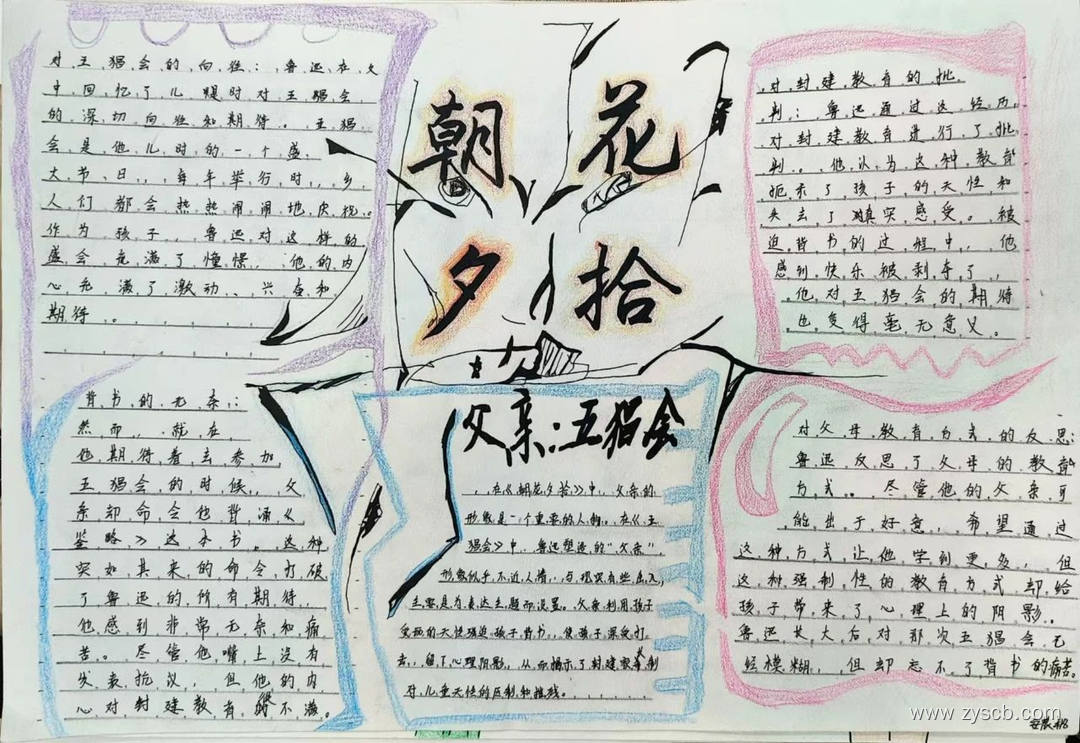 朝花
夕拾
对五猖会的向往:,鲁迅在文
中回忆了儿时对五猖会
的深切向往和期待。五猖
会是他儿时的一个盛
大节日,,每年举行时,,乡
人们都会热热闹闹地庆祝。
作为孩子,,鲁迅对这样的
盛会充满了憧憬,,他的内
心充满了激动、兴奋和
期待。
背书的无奈:
然而,,就在
他期待着去参加
五猖会的时候,,父
亲却命令他背诵《
鉴略》这本书。这种
突如其来的命令打破
了鲁迅的所有期待,
他感到非常无奈和痛
苦。尽管他嘴上没有
发表抗议,但他的内
心对封建教育的不满。
父亲:五猖会
,,在《朝花夕拾》中,父亲的
形象是一个重要的人物。在《五
猖会》中,鲁迅塑造的“父亲”,
形象似乎不近人情,,与现实有些出入,
主要是为表达主题而设置。父亲利用孩子
爱玩的天性强迫孩子背书,,使孩子深受打
击,,留了心理阴影,,从而揭示了封建家长制
对儿童天性的压制和摧残。
对封建教育的批
判:鲁迅通过这经历,
对封建教育进行了批
判。他认为这种教育
扼杀了孩子的天性和
失去了真实感受。被
迫背书的过程中,他
感到快乐被剥夺了,
他对五猖会的期待
也变得毫无意义。
对父母教育方式的反思:
鲁迅反思了父母的教育
方式。尽管他的父亲可
能出于好意,希望通过
这种方式让他学到更多,但
这种强制性的教育方式却给
孩子带来了心理上的阴影。
鲁迅长大后对那次五猖会已
经模糊,但却忘不了背书的痛苦。
www.zyscb.com